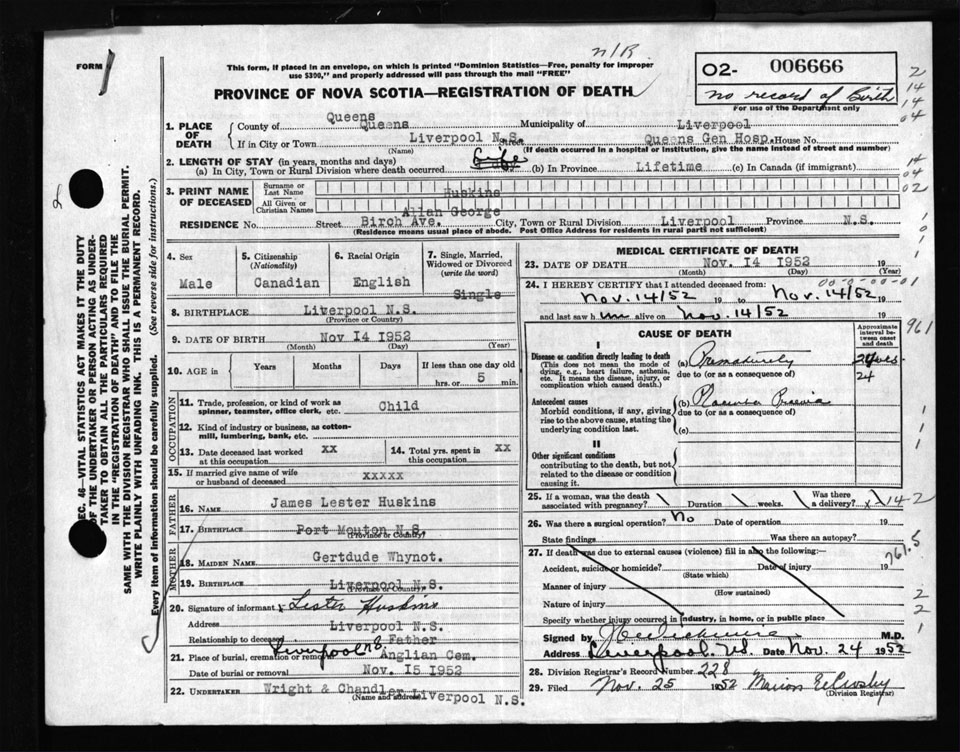 n/R
FORM 1
This form, if placed in an envelope, on which is printed "Dominion Statistics—Free, penalty for improper
use $300," and properly addressed will pass through the mail "FREE"
PROVINCE OF NOVA SCOTIA—REGISTRATION OF DEATH
O2- 006666
no record of Birth
For use of the Department only
2
14
14
04
14
04
02
1. PLACE OF DEATH
County of Queens
Queens
Municipality of Liverpool
If in City or Town Liverpool N.S. Street Queens Gen Hosp. House No
(Name) (If death occurred in a hospital or institution, give the name instead of street and number)
2. LENGTH OF STAY (in years, months and days)
(a) In City, Town or Rural Division where death occurred Life (b) In Province Lifetime (c) In Canada (if immigrant)
3. PRINT NAME OF DECEASED
Surname or Last Name Huskins
All Given or Christian Names Allan George
RESIDENCE No. Street Birch Ave. City, Town or Rural Division Liverpool Province N.S.
(Residence means usual place of abode. Post Office Address for residents in rural parts not sufficient)
4. Sex
Male
5. Citizenship (Nationality)
Canadian
6. Racial Origin
English
7. Single, Married, Widowed or Divorced (write the word)
Single
8. BIRTHPLACE Liverpool N.S.
(Province or Country)
9. DATE OF BIRTH Nov I4 I952
(Month) (Day) (Year)
10. AGE in
Years Months Days If less than one day old
hrs. or 5 min.
OCCUPATION
11. Trade, profession, or kind of work as spinner, teamster, office clerk, etc. Child
12. Kind of industry or business, as cotton-mill, lumbering, bank, etc.
13. Date deceased last worked at this occupation xx
14. Total yrs. spent in this occupation xx
15. If married give name of wife or husband of deceased xxxxx
FATHER
16. NAME James Lester Huskins
17. BIRTHPLACE Port Mouton N.S.
(Province or Country)
MOTHER
18. MAIDEN NAME Gertdude Whynot.
19. BIRTHPLACE Liverpool N.S.
(Province or Country)
20. Signature of informant x Lester Huskins
Address Liverpool N.S.
Relationship to deceased Father
21. Place of burial, cremation or removal Liverpool NS Anglian Cem.
Date of burial or removal Nov. I5 I952
22. UNDERTAKER Wright & Chandler Liverpool N.S.
(Name and address)
MEDICAL CERTIFICATE OF DEATH
23. DATE OF DEATH Nov. I4 I952 19
(Month) (Day) (Year)
24. I HEREBY CERTIFY that I attended deceased from: 00-0-00-01
Nov. 14/52 19 to Nov. 14/52 19
and last saw him alive on Nov. 14/52 19
CAUSE OF DEATH
Approximate interval between onset and death
I
Disease or condition directly leading to death
(This does not mean the mode of dying, e.g., heart failure, asthenia, etc. It means the disease, injury, or complication which caused death.)
(a) Prematurity
due to (or as a consequence of)
24
Antecedent causes
Morbid conditions, if any, giving rise to the above cause, stating the underlying condition last.
(b) Placenta Praevia
due to (or as a consequence of)
(c)
II
Other significant conditions
contributing to the death, but not related to the disease or condition causing it.
961
25. If a woman, was the death associated with pregnancy? Duration weeks. Was there a delivery? x 14-2
26. Was there a surgical operation? No Date of operation 19
State findings Was there an autopsy?
27. If death was due to external causes (violence) fill in also the following:—
761.5
Accident, suicide or homicide? Date of injury 19
(State which)
Manner of injury
(How sustained)
Nature of injury
Specify whether injury occurred in industry, in home, or in public place
Signed by M.D.
Address Liverpool. NS. Date Nov. 24 1952
28. Division Registrar's Record Number 228
29. Filed Nov. 25 1952 Marion E. Crosby
(Division Registrar)
SEC. 46—VITAL STATISTICS ACT MAKES IT THE DUTY
OF THE UNDERTAKER OR PERSON ACTING AS UNDER-
TAKER TO OBTAIN ALL THE PARTICULARS REQUIRED
IN THE "REGISTRATION OF DEATH" AND TO FILE THE
SAME WITH THE DIVISION REGISTRAR WHO SHALL ISSUE THE BURIAL PERMIT.
WRITE PLAINLY WITH UNFADING INK. THIS IS A PERMANENT RECORD.
Every item of information should be carefully supplied. (See reverse side for instructions.)